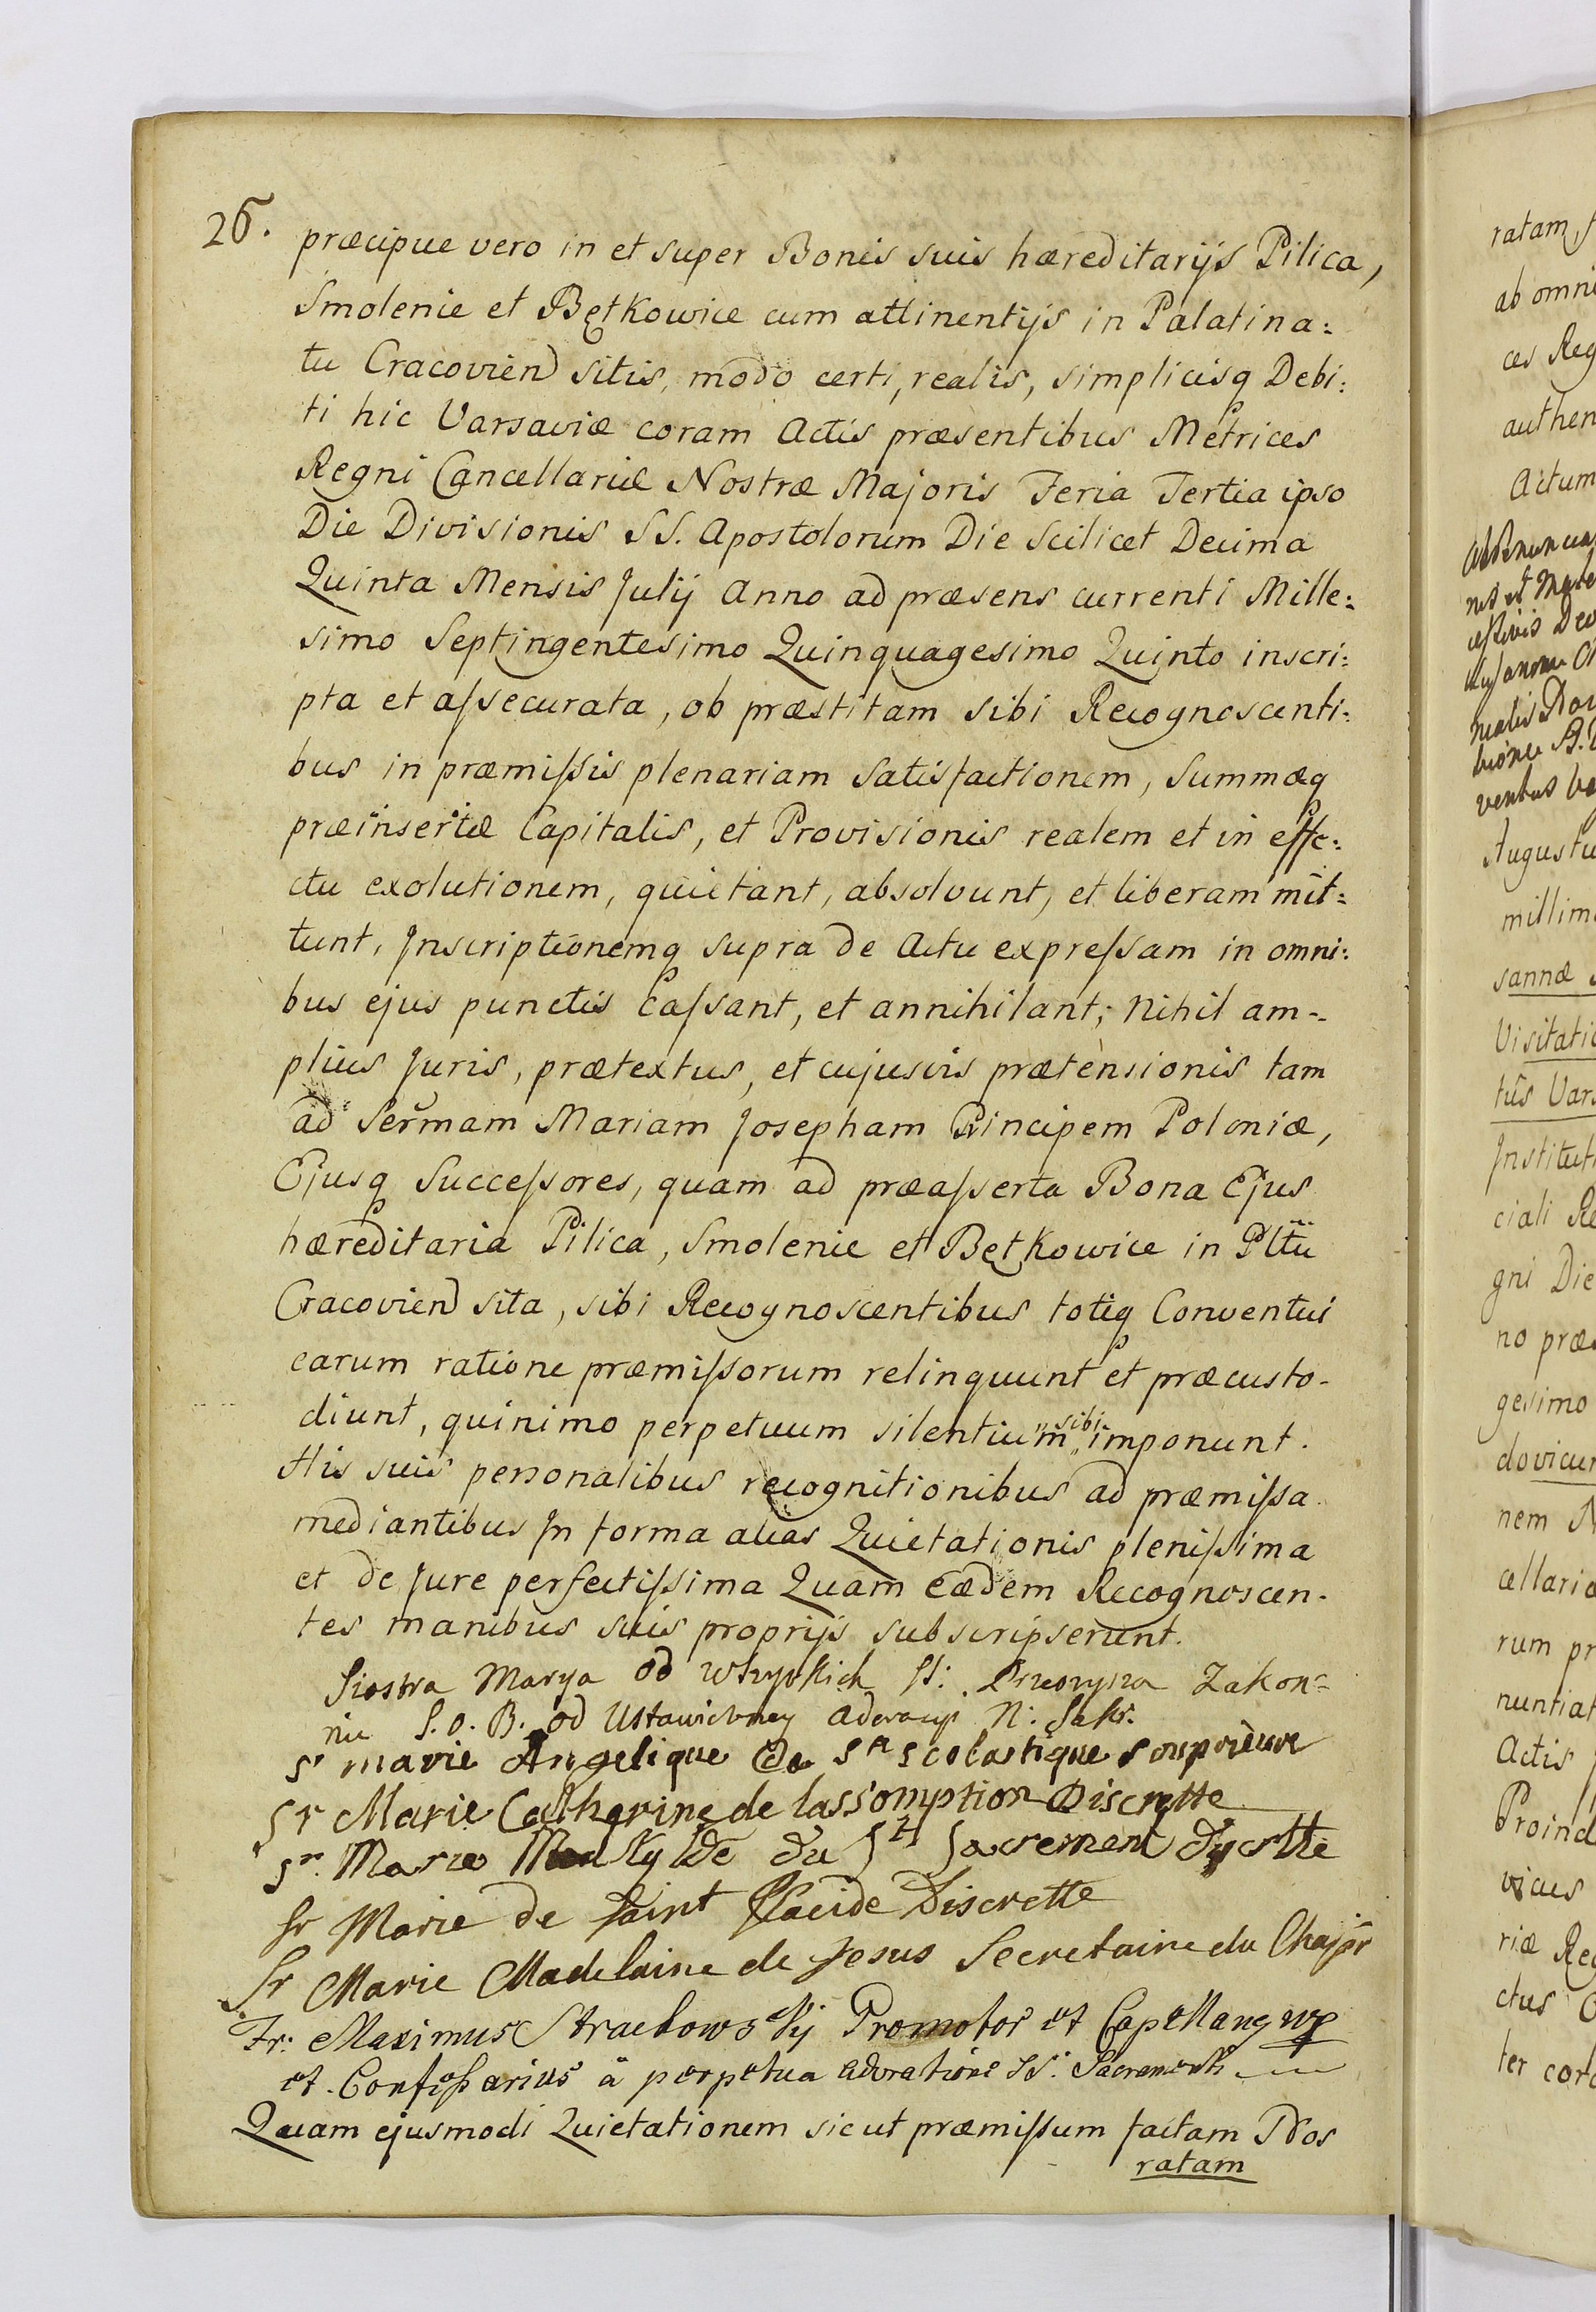 26.
præcipue vero in et super Bonis suis hæreditarijs Pilica,
Smolenie et Bętkowice cum attinentijs in Palatina:
tu Cracovien̄ sitis, modo certi, realis, simplicisq̃ Debi:
ti hic Varsaviæ coram Actis præsentibus Metrices
Regni Cancellariæ Nostræ Majoris Feria Tertia ipso
Die Divisionis SS. Apostolorum Die Scilicet Decima
Quinta Mensis Julij Anno ad præsens currenti Mille:
simo Septingentesimo Quinquagesimo Quinto inscri:
pta et aſsecurata, ob præstitam sibi Recognoscenti:
bus in præmiſsis plenariam Satisfactionem, Summæq̃
præinsertæ Capitalis, et Provisionis realem et in effe:
ctu exolutionem, quietant, absolvunt, et liberam mit:
tunt, Inscriptionemq̃ supra de Actu expreſsam in omni:
bus ejus punctis Caſsant, et annihilant; Nihil am-
plius Juris, prætextus, et cujusvis prætensionis tam
ad Serm̃am Mariam Josepham Principem Poloniæ,
Ejusq̃ Succeſsores, quam ad præaſserta Bona Ejus
hæreditaria Pilica, Smolenie et Bętkowice in Pltũ
Cracovien̄ sita, sibi Recognoscentibus totiq̃ Conventui
earum ratione præmiſsorum relinquunt et præcusto-
diunt, quinimo perpetuum silentium sibi imponunt.
His suis personalibus recognitionibus ad præmiſsa
mediantibus In forma alias Quietationis pleniſsima
et de Jure perfectiſsima Quam Eædem Recognoscen-
tes manibus suis proprijs subscripserunt.
Siostra Marya od wszystkich SS: Przeorysza Zakon=
nic S. O. B. od Ustawiczney Adoracyi N: Sakr.
Sr marie Angelique de Ste Scolastique souprieure
Sr Marie Catherine de lassomption Discrette
Sr. Marie du St Sacrement
Sr Marie de Saint Placide Discrette
Sr Marie Madelaine de Jesus Secretaire du Chapr
Fr: Maximus Promotor et Capellanq mp
et Confeſsarius à perpetua adoratione SS: Sacramenti
Quam ejusmodi Quietationem sicut præmiſsum factam Nos
ratam
ratam
ab omni
ces Reg
authen
Actum
Augustu
millim
sannæ
Visitatio
tûs Vars
Institut
ciali Re
gni Die
no præs
gesimo
dovicum
nem N
cellariæ
rum pr
nuntiat
Actis
Proind
vicus
riæ Reg
ctus
ter cor